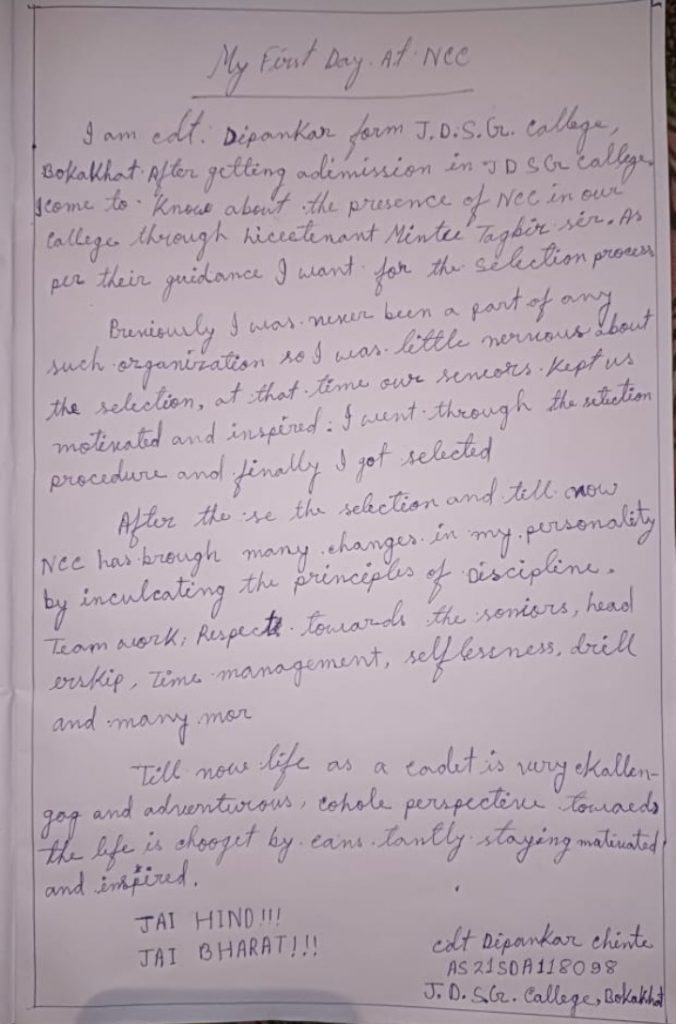 My First Day At NCC
I am cdt. Dipankar form J.D.S.G. Callege,
Bokakhat. After getting adimission in J D S G callege.
I come to know about the presence of NCC in our
callege through liceetenant Mintu Tagbir sir. As
per their guidance I want for the selection process
Previously I was never been a part of any
such organization so I was little nervous about
the selection, at that time our seneors kept us
motivated and inspired. I went through the selection
procedure and finally I got selected
After the se the selection and till now
NCC has brough many changes in my personality
by inculcating the principles of Discipline.
Team work, Respect towards the seniors, head
ership, Time management, selflessness, drill
and many mor
Till now life as a cadet is very challen-
gog and adventurous, cohole perspective towards
the life is chooget by cans tantly staying mativated
and inspired.
JAI HIND!!!
JAI BHARAT!!!
cdt Dipankar chinte
AS21SDA118098
J. D. S.G. College, Bokakhat